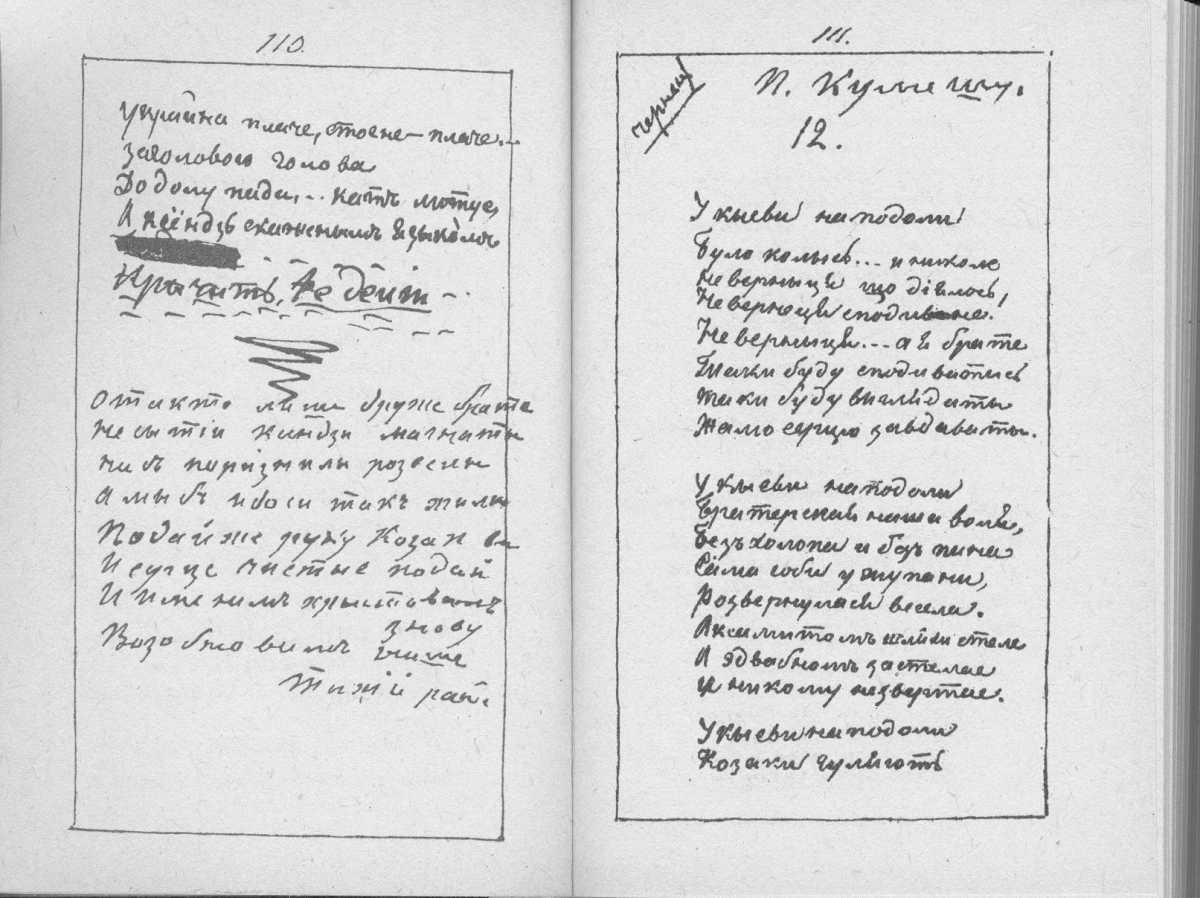 110.
Украйна плаче, стогне-плаче...
За головою голова
Додолу пада... катъ лютуе,
А ксёндзъ скаженымъ языкомъ
Кричить, te deum...
Отакто ляше друже брате
Несытіи ксіондзи магнаты
насъ порізнили розвели
А мыбъ и доси такъ жили
Подай же руку Козакови
И сердце чистые подай
И именимъ христовымъ
знову
Возобновимъ нашъ
тихій рай.
111.
чернець
П. Кулешу.
12.
У кыеви на подоли
Було колысь... и николе
Невернеця що діялось,
Невернеця сподиване.
Невернеця... а я брате
Таки буду сподиватись
Таки буду виглядаты
Жалю серцю завдаваты.
У кыеви на подоли
Братерская наша воля,
Безъ холопа и безъ пана
Сама соби у жупани,
Розвернулася весела.
Аксамитомъ шляхи стеле
А ядвабномъ застелае
И никому незвертае.
У кыеви на подоли
Козаки гуляють